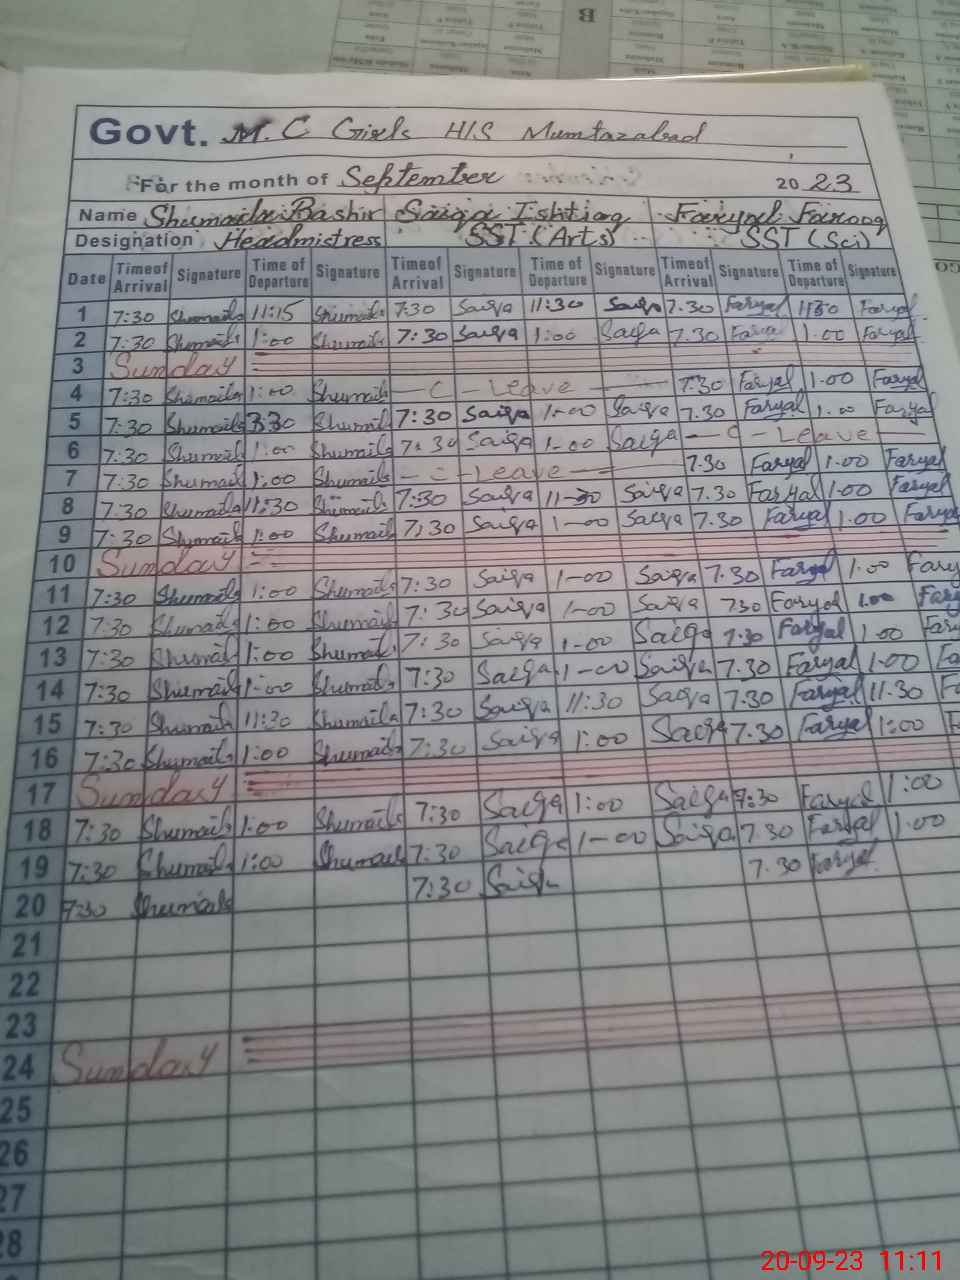 Govt. M.C Girls H/S Mumtazabad
For the month of September 2023
Name Shumaila Bashir Saiqa Ishtiaq Faryal Farooq
Designation Headmistress SST (Arts) SST (Sci)
Date Timeof Arrival Signature Time of Departure Signature Timeof Arrival Signature Time of Departure Signature Timeof Arrival Signature Time of Departure Signature
1 7:30 Shumaila 11:15 Shumaila 7:30 Saiqa 11:30 Saiqa 7.30 Faryal 1130 Faryal
2 7:30 Shumaila 1:00 Shumaila 7:30 Saiqa 1:00 Saiqa 7.30 Faryal 1.00 Faryal
3 Sunday
4 7:30 Shumaila 1:00 Shumaila — C — Leave — 7.30 Faryal 1.00 Faryal
5 7:30 Shumaila Shumaila 7:30 Saiqa 1-00 Saiqa 7.30 Faryal 1.00 Faryal
6 7:30 Shumaila 1:00 Shumaila 7:30 Saiqa 1-00 Saiqa — C — Leave —
7 7:30 Shumaila 1:00 Shumaila — C — Leave — 7.30 Faryal 1.00 Faryal
8 7:30 Shumaila 11:30 Shumaila 7:30 Saiqa 11-30 Saiqa 7.30 Faryal 1.00 Faryal
9 7:30 Shumaila 1:00 Shumaila 7:30 Saiqa 1-00 Saiqa 7.30 Faryal 1.00 Faryal
10 Sunday
11 7:30 Shumaila 1:00 Shumaila 7:30 Saiqa 1-00 Saiqa 7.30 Faryal 1.00 Fary
12 7:30 Shumaila 1:00 Shumaila 7:30 Saiqa 1-00 Saiqa 730 Faryal 1.00 Fary
13 7:30 Shumaila 1:00 Shumaila 7:30 Saiqa 1-00 Saiqa 7.30 Faryal 1.00 Far
14 7:30 Shumaila 1:00 Shumaila 7:30 Saiqa 1-00 Saiqa 7.30 Faryal 1.00 Fa
15 7:30 Shumaila 11:30 Shumaila 7:30 Saiqa 11:30 Saiqa 7.30 Faryal 11.30 Fa
16 7:30 Shumaila 1:00 Shumaila 7:30 Saiqa 1:00 Saiqa 7.30 Faryal 1:00 F
17 Sunday
18 7:30 Shumaila 1:00 Shumaila 7:30 Saiqa 1:00 Saiqa 7:30 Faryal 1:00
19 7:30 Shumaila 1:00 Shumaila 7:30 Saiqa 1-00 Saiqa 7.30 Faryal 1.00
20 7:30 Shumaila 7:30 Saiqa 7.30 Faryal
21
22
23
24 Sunday
25
26
27
28
20-09-23 11:11